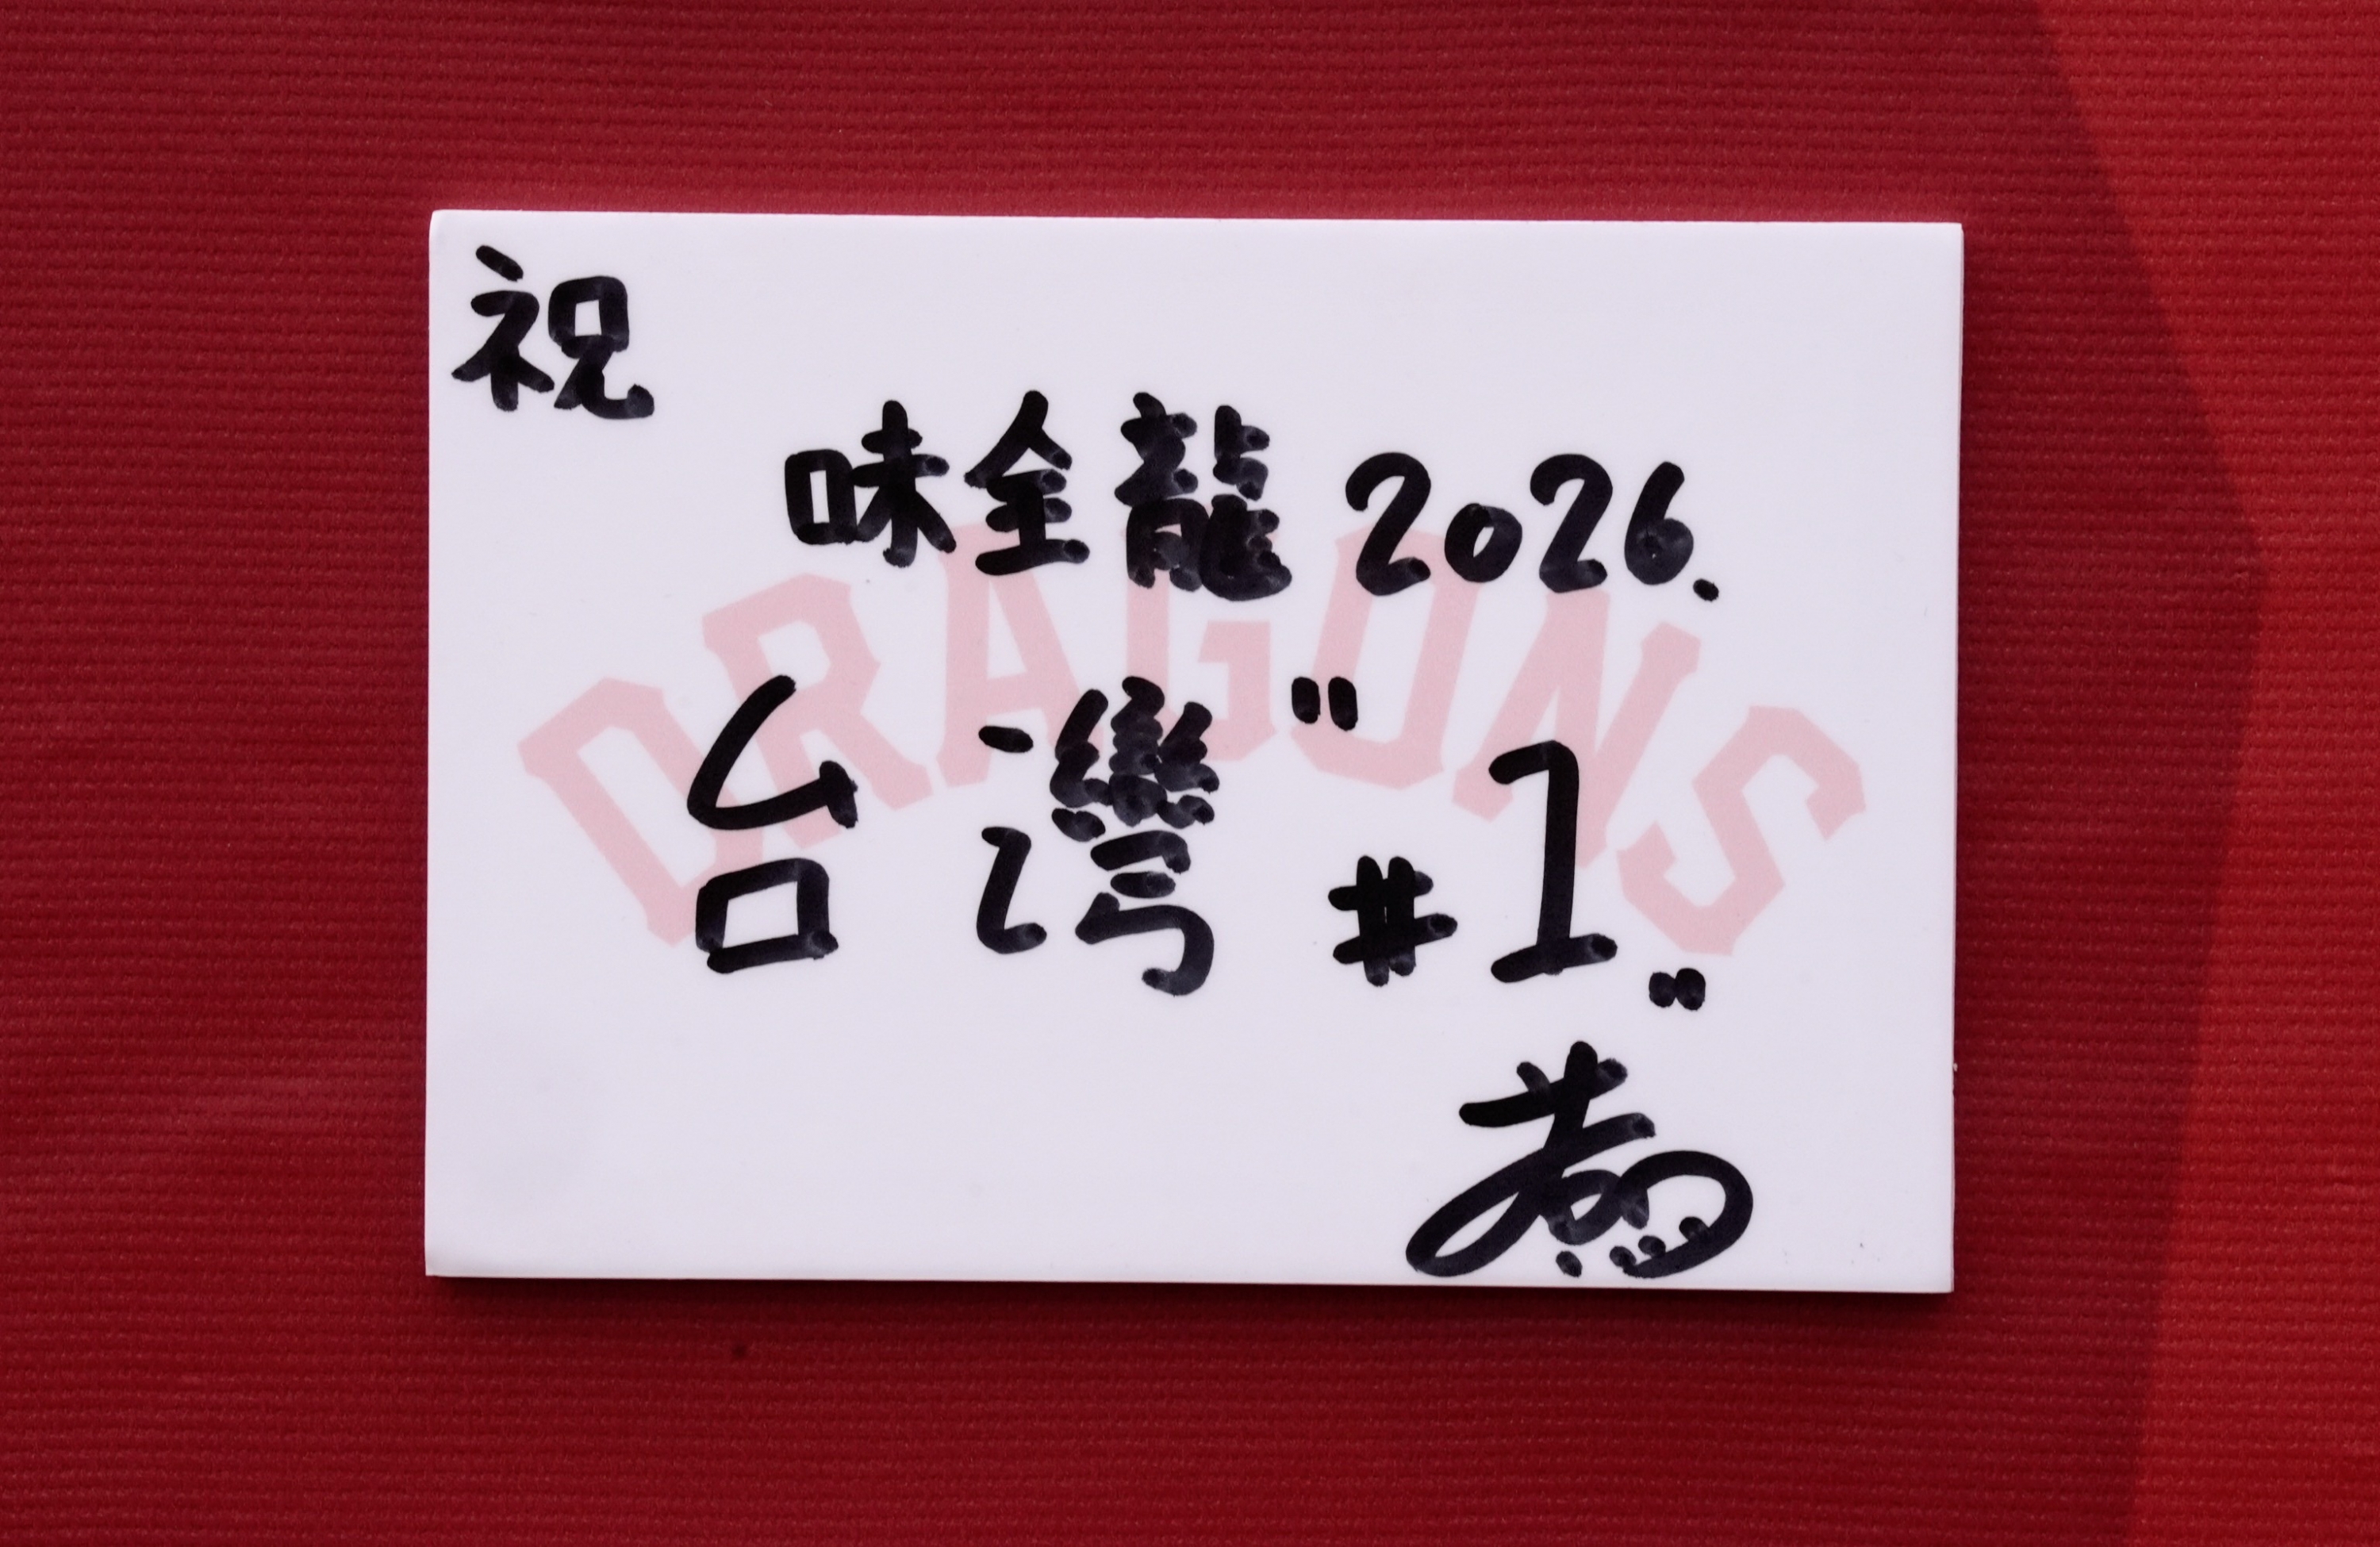 祝
味全龍 2026.
DRAGONS
台灣 "#1"